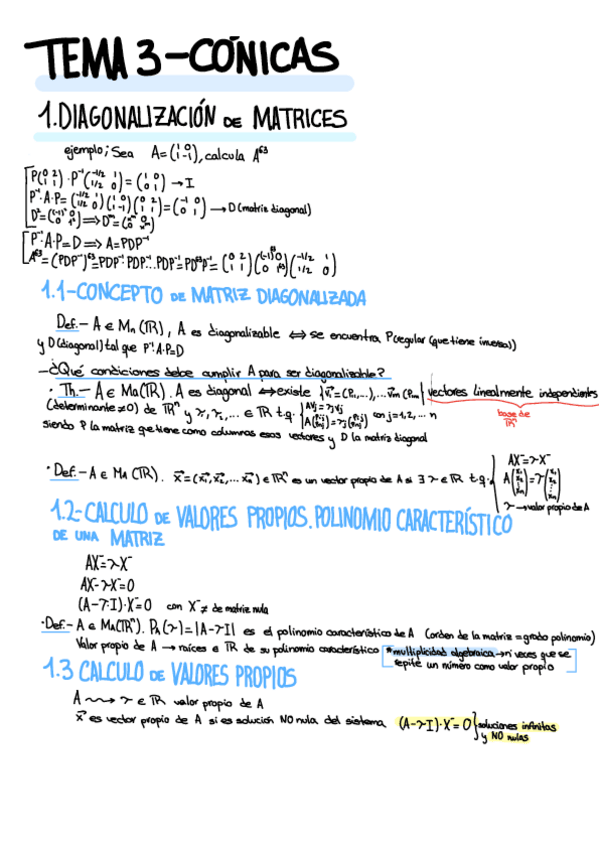 TEMA 3-CÓNICAS
1.DIAGONALIZACIÓN DE MATRICES
ejemplo; Sea A=(1 0 / 1 -1), calcula A⁶³
P(0 2 / 1 1) · P⁻¹(-1/2 1 / 1/2 0) = (1 0 / 0 1) → I
P⁻¹·A·P = (-1/2 1 / 1/2 0)(1 0 / 1 -1)(0 2 / 1 1) = (-1 0 / 0 1) → D (matriz diagonal)
P⁻¹·A·P=D ⟹ A=PDP⁻¹
A⁶³=(PDP⁻¹)⁶³=PDP⁻¹·PDP⁻¹...PDP⁻¹=PD⁶³P⁻¹= (0 2 / 1 1)((-1)⁶³ 0 / 0 1⁶³)(-1/2 1 / 1/2 0)
1.1-CONCEPTO DE MATRIZ DIAGONALIZADA
Def.- A ∈ Mn (ℝ), A es diagonalizable ⟺ se encuentra P(regular (que tiene inversa))
y D(diagonal) tal que P⁻¹·A·P=D
-¿Qué condiciones debe cumplir A para ser diagonalizable?
· Th.- A ∈ Mn(ℝ). A es diagonal ⟺ existe vectores linealmente independientes
(determinante ≠0) de ℝⁿ y λ₁, λ₂,... ∈ ℝ t.q. con j=1,2,... n
base de ℝⁿ
siendo P la matriz que tiene como columnas esos vectores y D la matriz diagonal
· Def.- A ∈ Mn (ℝ). x⃗=(x₁, x₂,... xₙ) ∈ ℝⁿ es un vector propio de A si ∃ λ ∈ ℝ t.q.
AX=λX
λ → valor propio de A
1.2-CALCULO DE VALORES PROPIOS. POLINOMIO CARACTERÍSTICO
DE UNA MATRIZ
AX=λX
AX-λX=0
(A-λ·I)·X=0 con X ≠ de matriz nula
·Def.- A ∈ Mn(ℝⁿ). Pₐ(λ)=|A-λI| es el polinomio característico de A (orden de la matriz=grado polinomio)
Valor propio de A → raíces ∈ ℝ de su polinomio característico *multiplicidad algebraica→nº veces que se
repite un número como valor propio
1.3 CALCULO DE VALORES PROPIOS
A ⇝ λ ∈ ℝ valor propio de A
x⃗ es vector propio de A si es solución NO nula del sistema (A-λI)·X=0 soluciones infinitas
y NO nulas